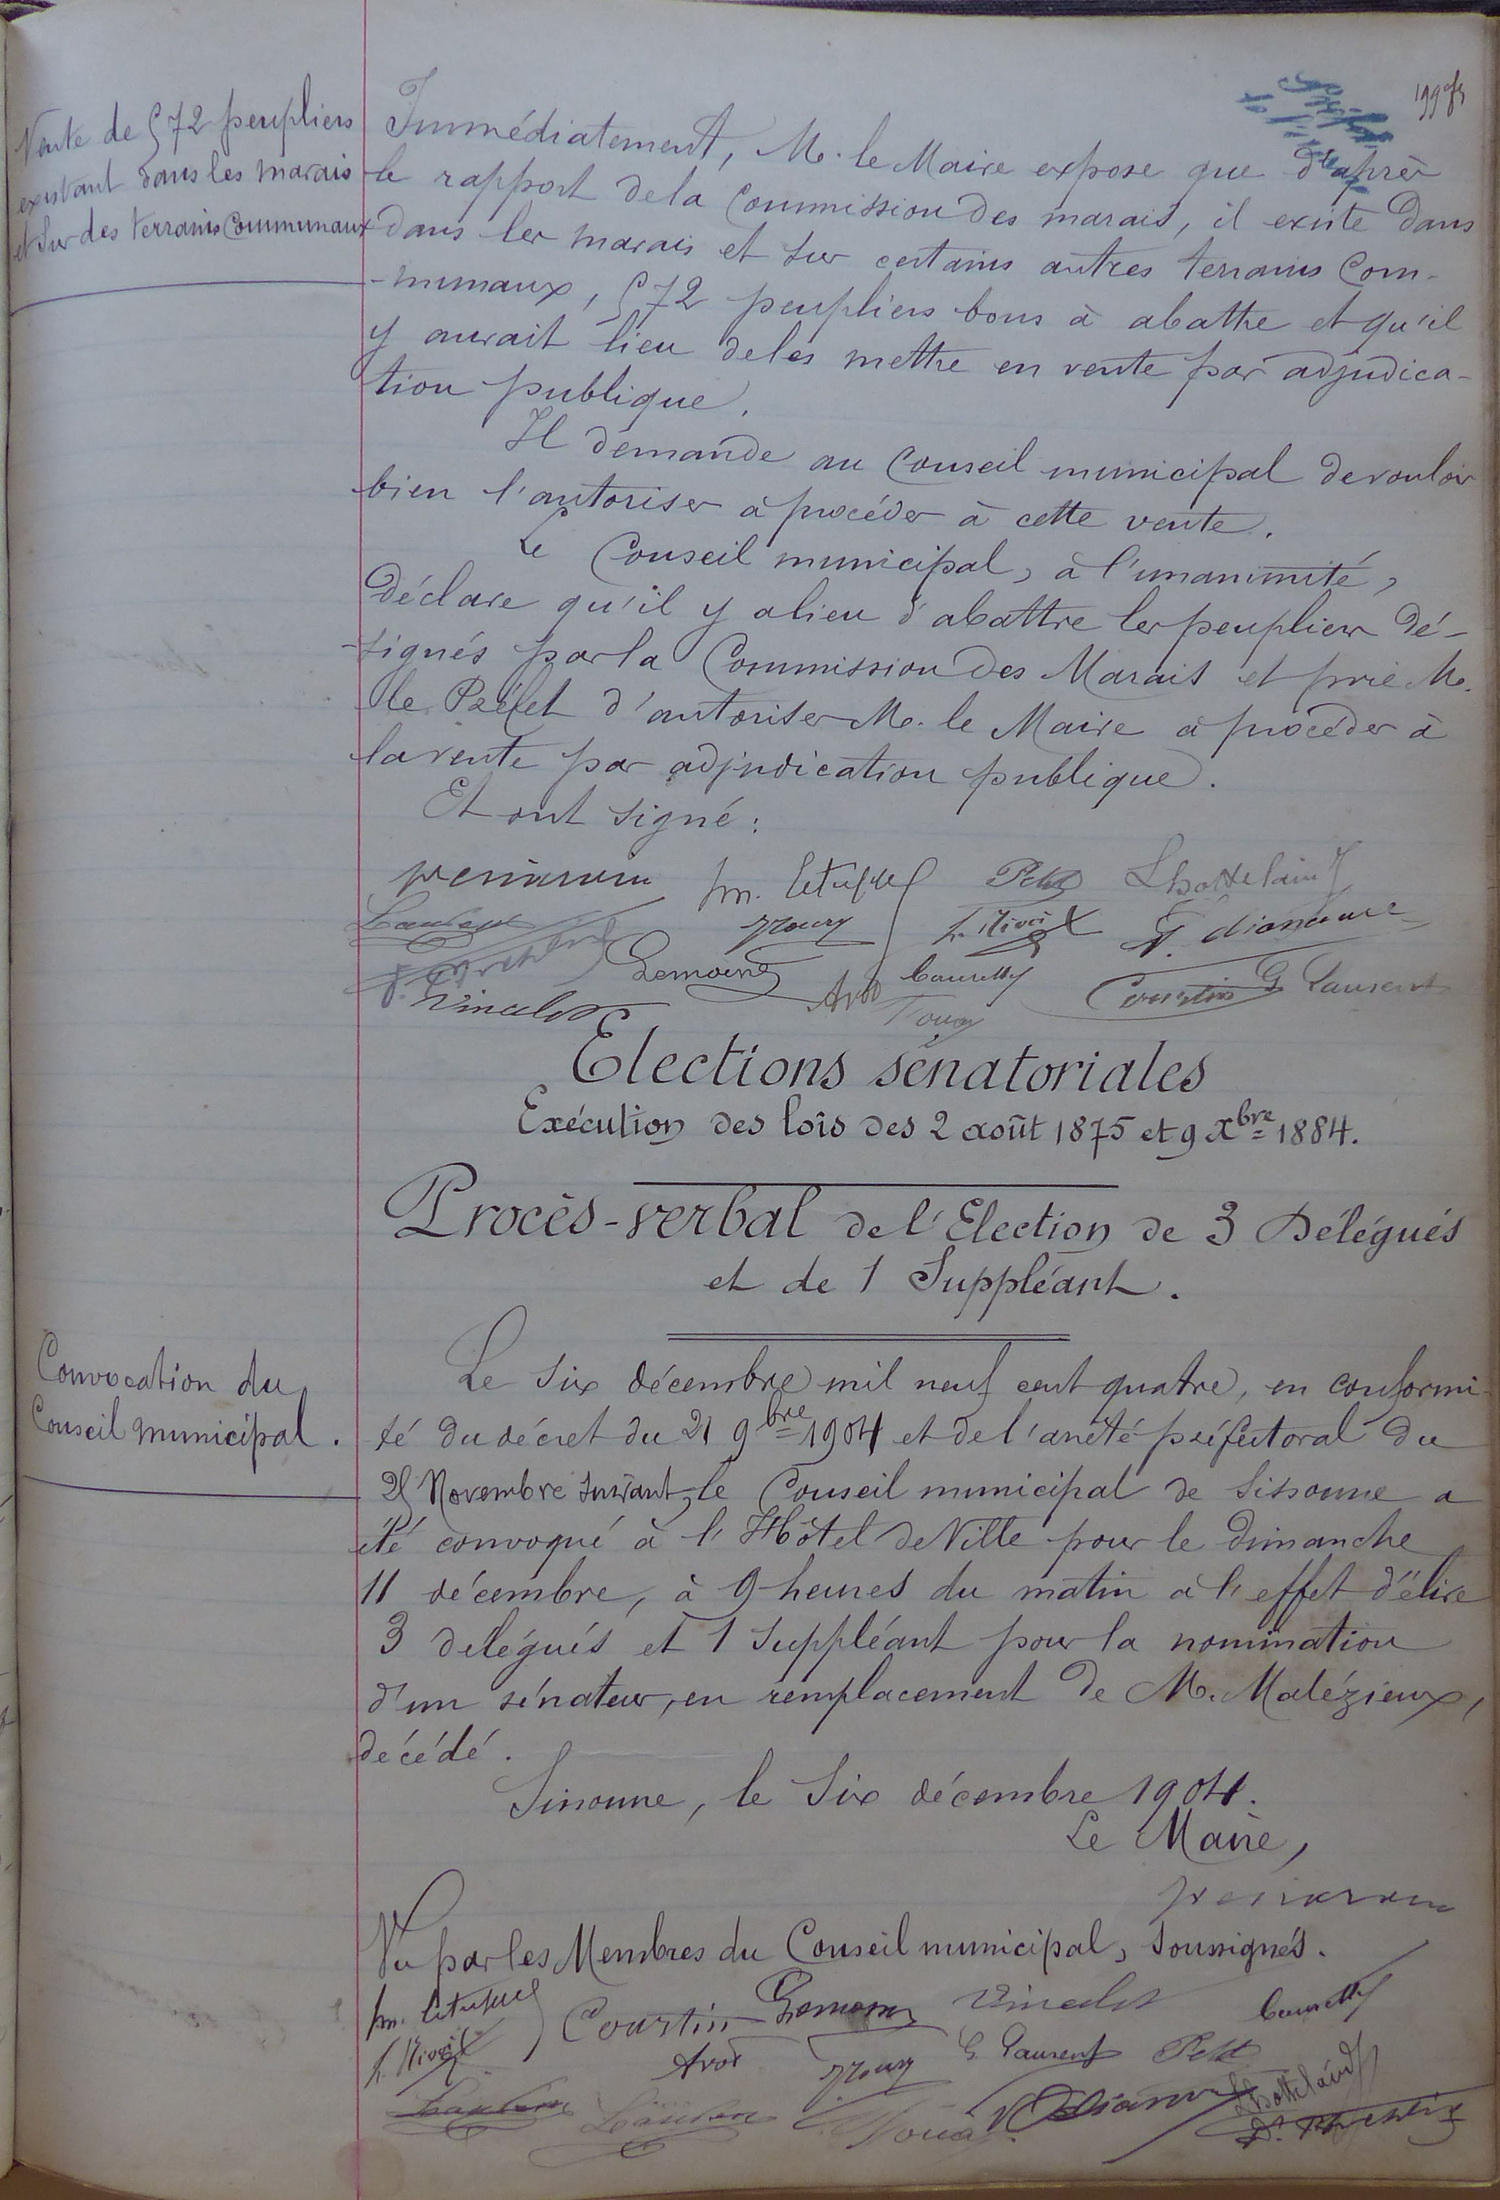 Vente de 572 peupliers
existant dans les marais
et sur des terrains communaux
Immédiatement, M. le Maire expose que d'après
le rapport de la Commission des marais, il existe dans
dans les marais et sur certains autres terrains com-
-munaux, 572 peupliers bons à abattre et qu'il
y aurait lieu de les mettre en vente par adjudica-
tion publique.
Il demande au Conseil municipal de vouloir
bien l'autoriser à procéder à cette vente.
Le Conseil municipal, à l'unanimité,
Déclare qu'il y a lieu d'abattre les peupliers dé-
-signés par la Commission des Marais et prie M.
le Préfet d'autoriser M. le Maire à procéder à
la vente par adjudication publique.
Et ont signé :
Petit Lhottelain
Lemoine Courtin G. Laurent
Elections sénatoriales
Exécution des lois des 2 août 1875 et 9 Xbre 1884.
Procès-verbal de l'Election de 3 Délégués
et de 1 Suppléant.
Convocation du
Conseil municipal.
Le six décembre mil neuf cent quatre, en conformi-
té du décret du 21 9bre 1904 et de l'arrêté préfectoral du
25 Novembre suivant, le Conseil municipal de Sissonne a
été convoqué à l'Hôtel de Ville pour le dimanche
11 décembre, à 9 heures du matin à l'effet d'élire
3 délégués et 1 suppléant pour la nomination
d'un sénateur, en remplacement de M. Malézieux,
décédé.
Sissonne, le six décembre 1904.
Le Maire,
Vu par les Membres du Conseil municipal, soussignés.
Courtin Lemoine
G. Laurent Petit
Lhottelain